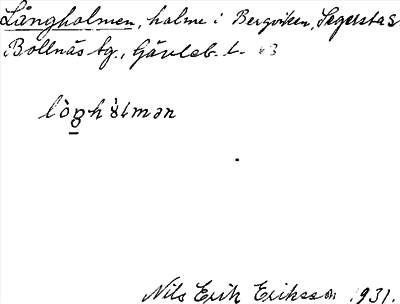 Långholmen, holme i Bergviken, Segerstas
Bollnäs tg., Gävleb. l. 63
Nils Erik Eriksson 1931.